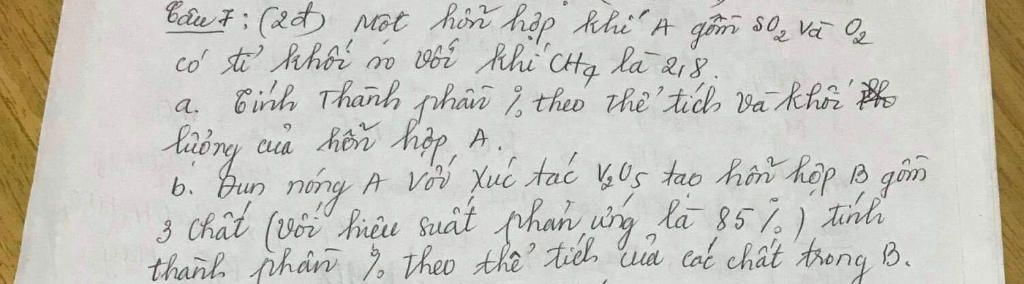 Câu 7: (2đ) Một hỗn hợp khí A gồm SO2 và O2
có tỉ khối so với khí CH4 là 2,8.
a. Tính Thành phần % theo Thể tích và khối
lượng của hỗn hợp A.
b. Đun nóng A với Xúc tác V2O5 tạo hỗn hợp B gồm
3 chất (với hiệu suất phản ứng là 85%) tính
thành phần % Theo thể tích của các chất trong B.